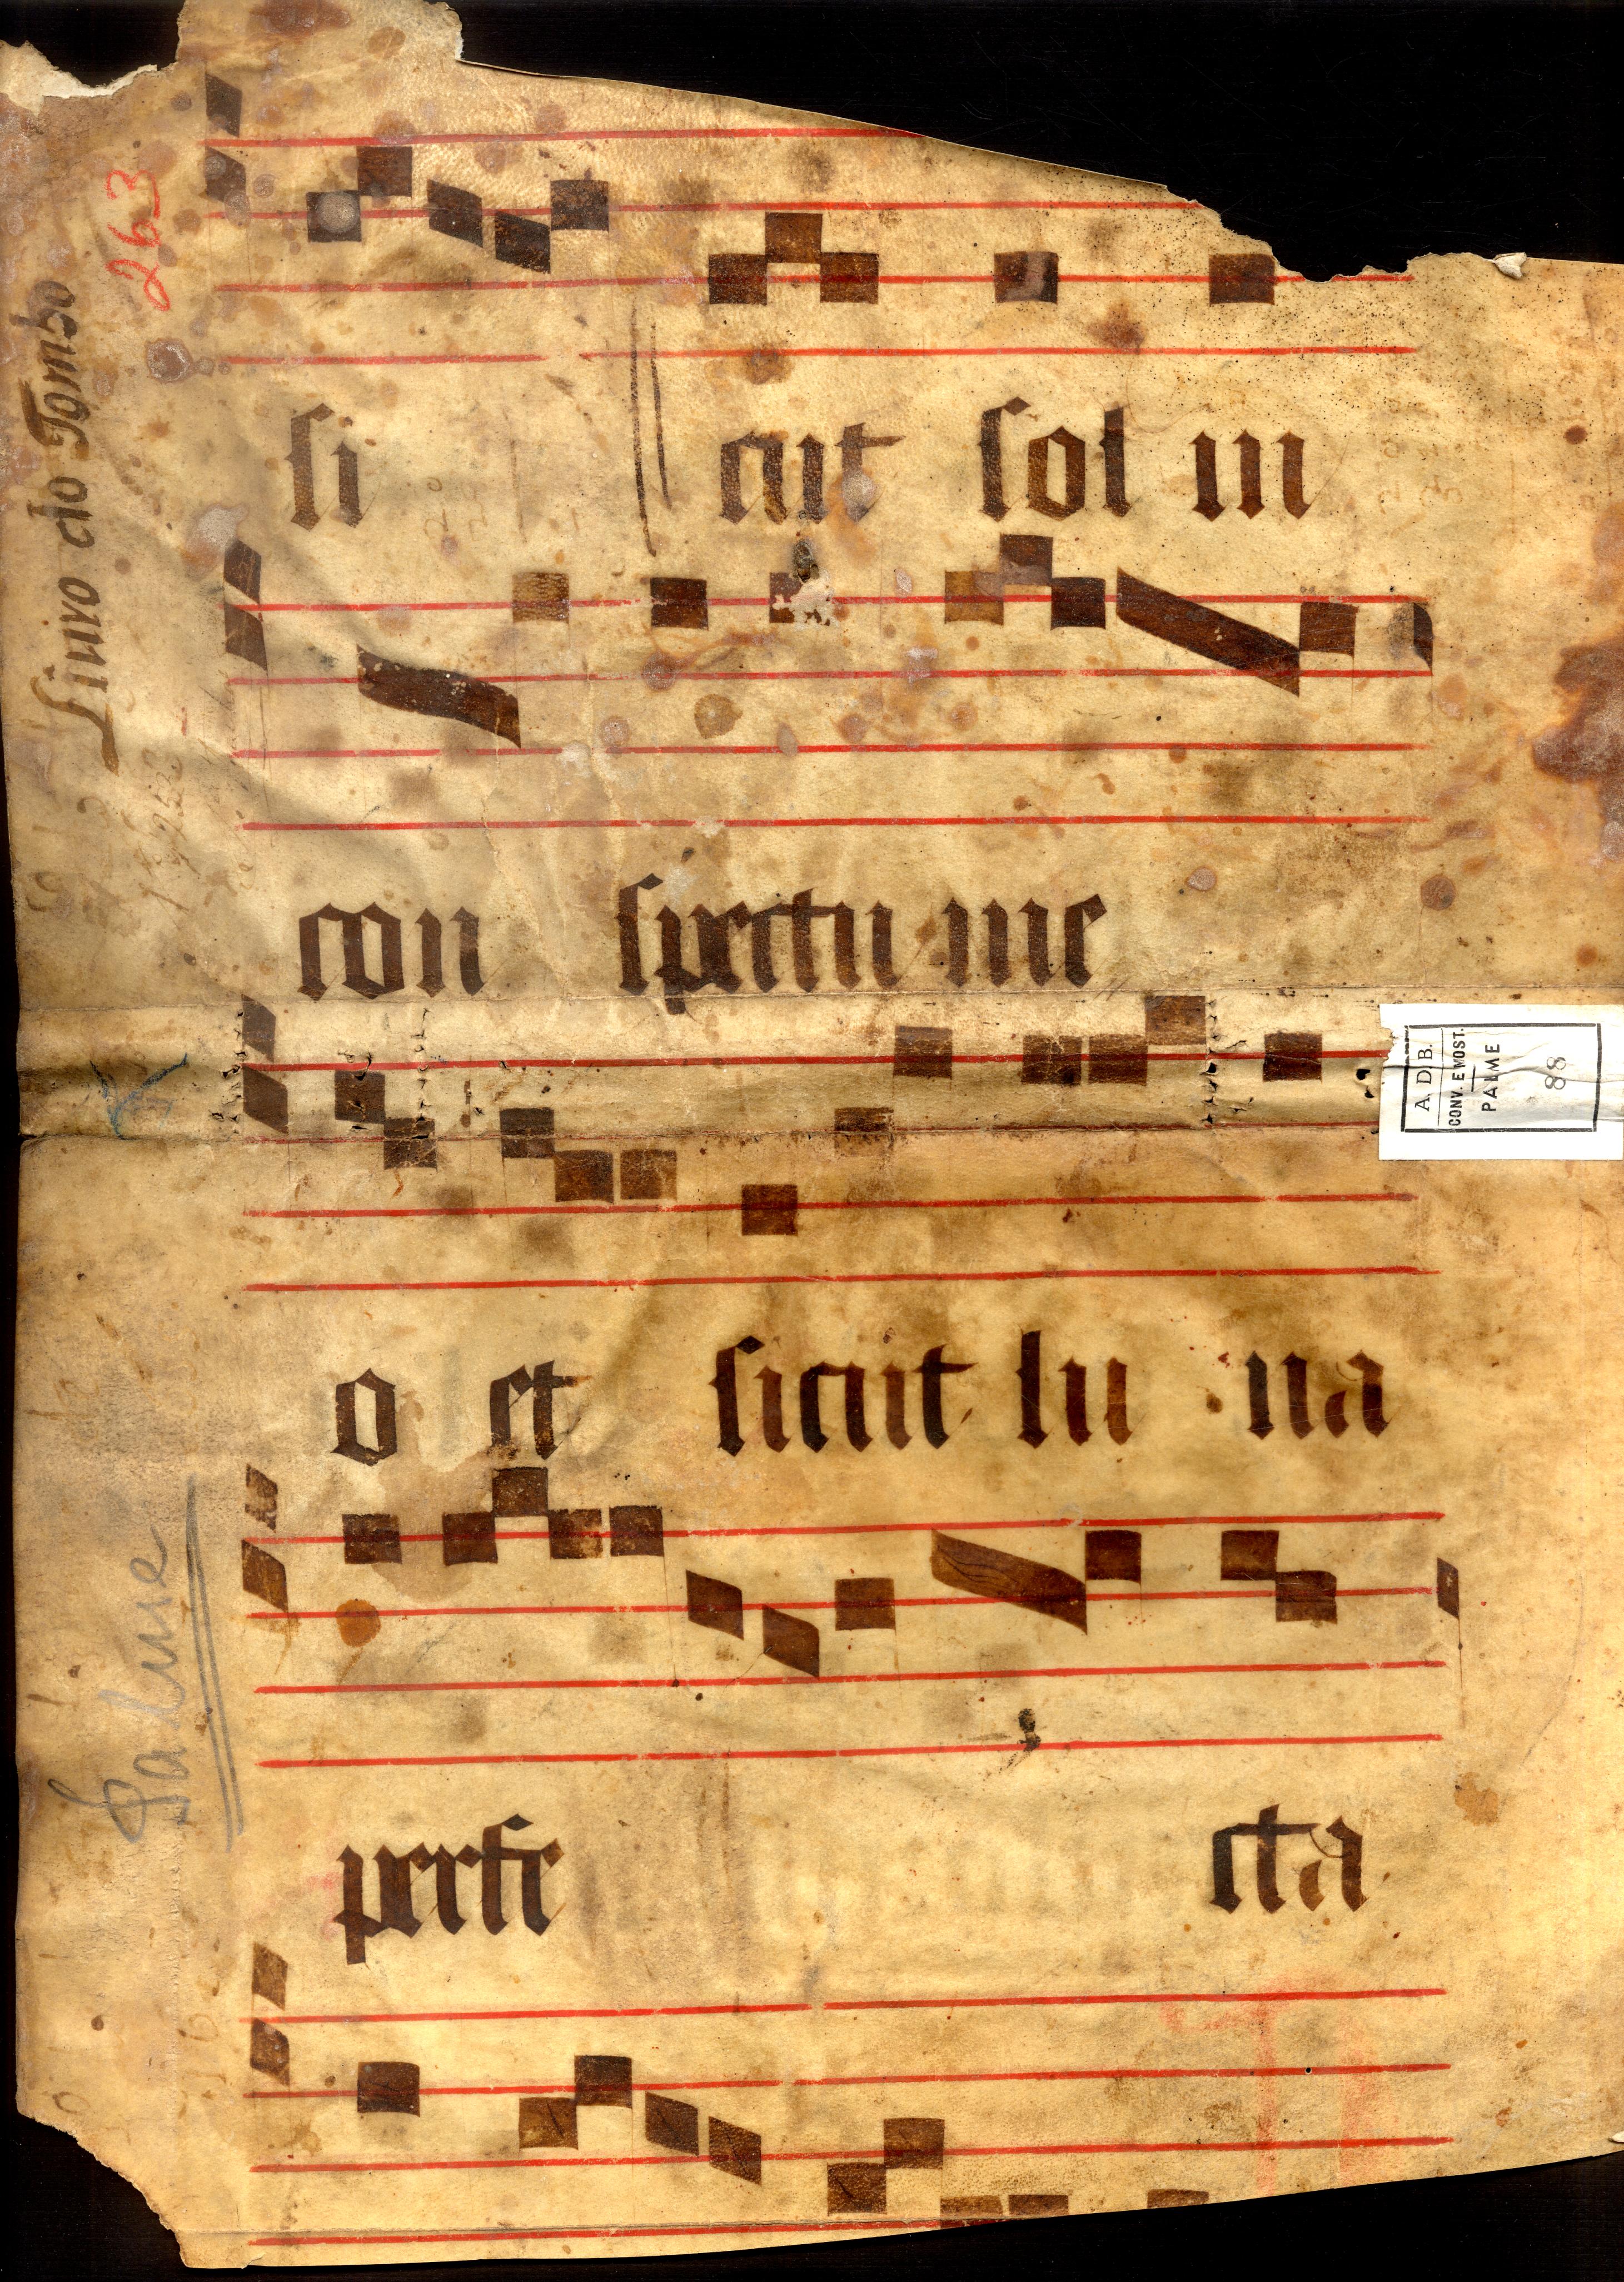 263
Liuro do Tombo
si cut sol in
con spectu me
A. D. B.
CONV. E MOST.
PALME
88
o et sicut lu na
Palme
perfe cta